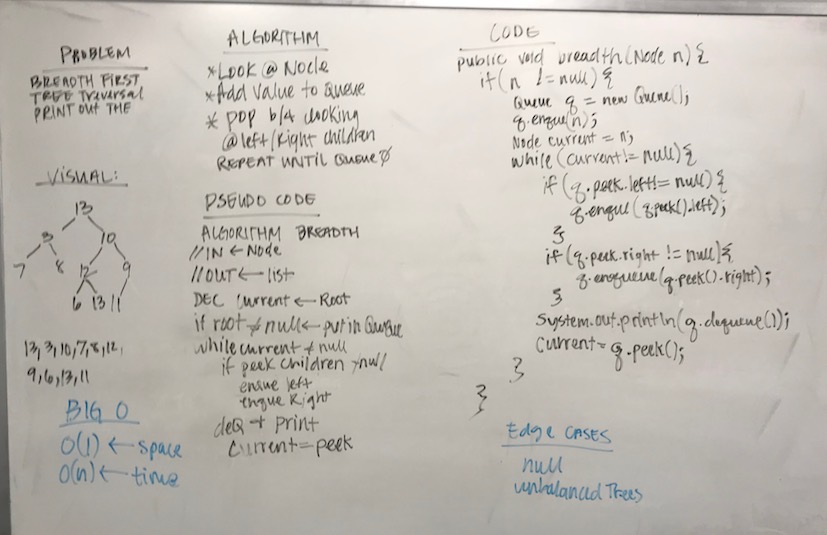 PROBLEM
BREADTH FIRST
TREE Traversal
PRINT OUT THE
VISUAL:
13
3 10
7 8 12 9
6 13 11
13, 3, 10, 7, 8, 12,
9, 6, 13, 11
BIG O
O(1) ← space
O(n) ← time
ALGORITHM
*LOOK @ Node
*Add value to Queue
* POP b/4 looking
@left/Right children
REPEAT UNTIL Queue ∅
PSEUDO CODE
ALGORITHM BREADTH
//IN ← Node
//OUT ← list
DEC Current ← Root
if root ≠ null ← put in Queue
while current ≠ null
if peek children ≠ null
enque left
enque Right
deQ + print
Current = peek
CODE
public void breadth(Node n) {
if(n != null) {
Queue q = new Queue();
q.enque(n);
Node current = n;
while (current != null) {
if (q.peek.left != null) {
q.enque(q.peek().left);
}
if (q.peek.right != null) {
q.enqueue(q.peek().right);
}
System.out.println(q.dequeue());
Current = q.peek();
}
}
Edge CASES
null
unbalanced Trees